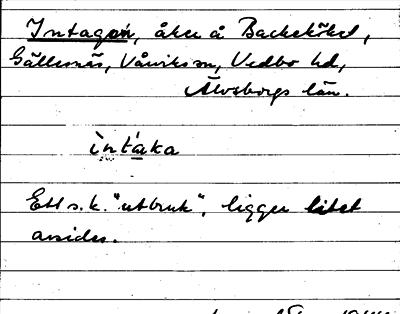 Intagan, åker å Backekölet,
Gällesnäs, Vårviks sn, Vedbo hd,
Älvsborgs län.
ìntáka
Ett s.k. "utbruk", ligger litet
avsides.